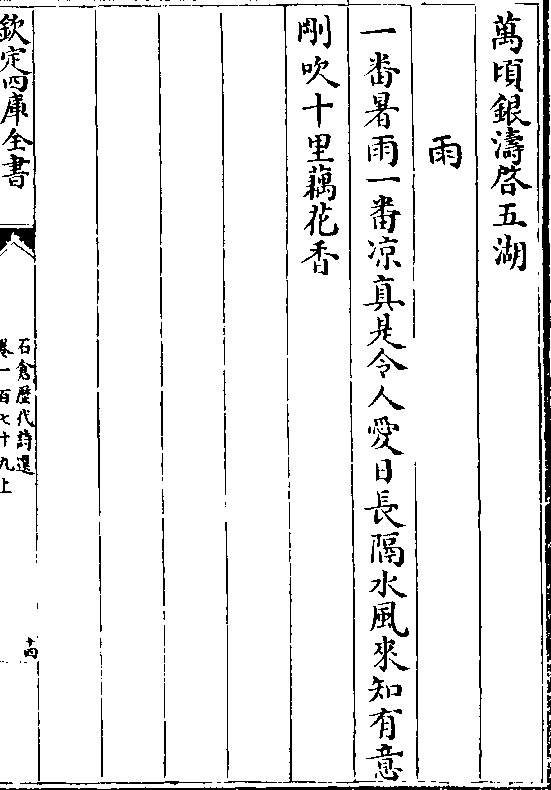 萬頃銀濤啓五湖
雨
一番暑雨一番凉真是令人愛日長隔水風來知有意
剛吹十里藕花香
欽定四庫全書
石倉歴代詩選
卷一百七十九上
十四